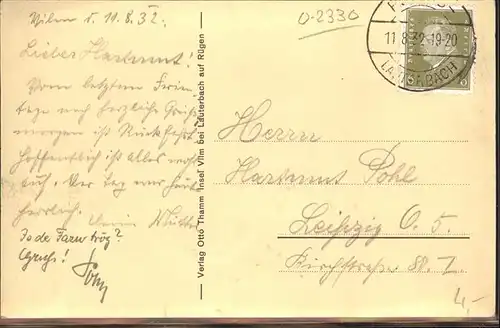 Vilm d. 11.8.32.
O-2330
Lieber Hartmut!
Vom letzten Ferien-
tage noch herzliche Grüße
morgen ist Rückfahrt
hoffentlich ist alles
Der Tag war heute
herrlich.
Deine Mutter
Gruß!
11.8.32-19-20
LAUTERBACH
Verlag Otto Thamm Insel Vilm bei Lauterbach auf Rügen
Herrn
Hartmut Pohl
Leipzig O. 5.
Kirchstraße 88. I
4,-